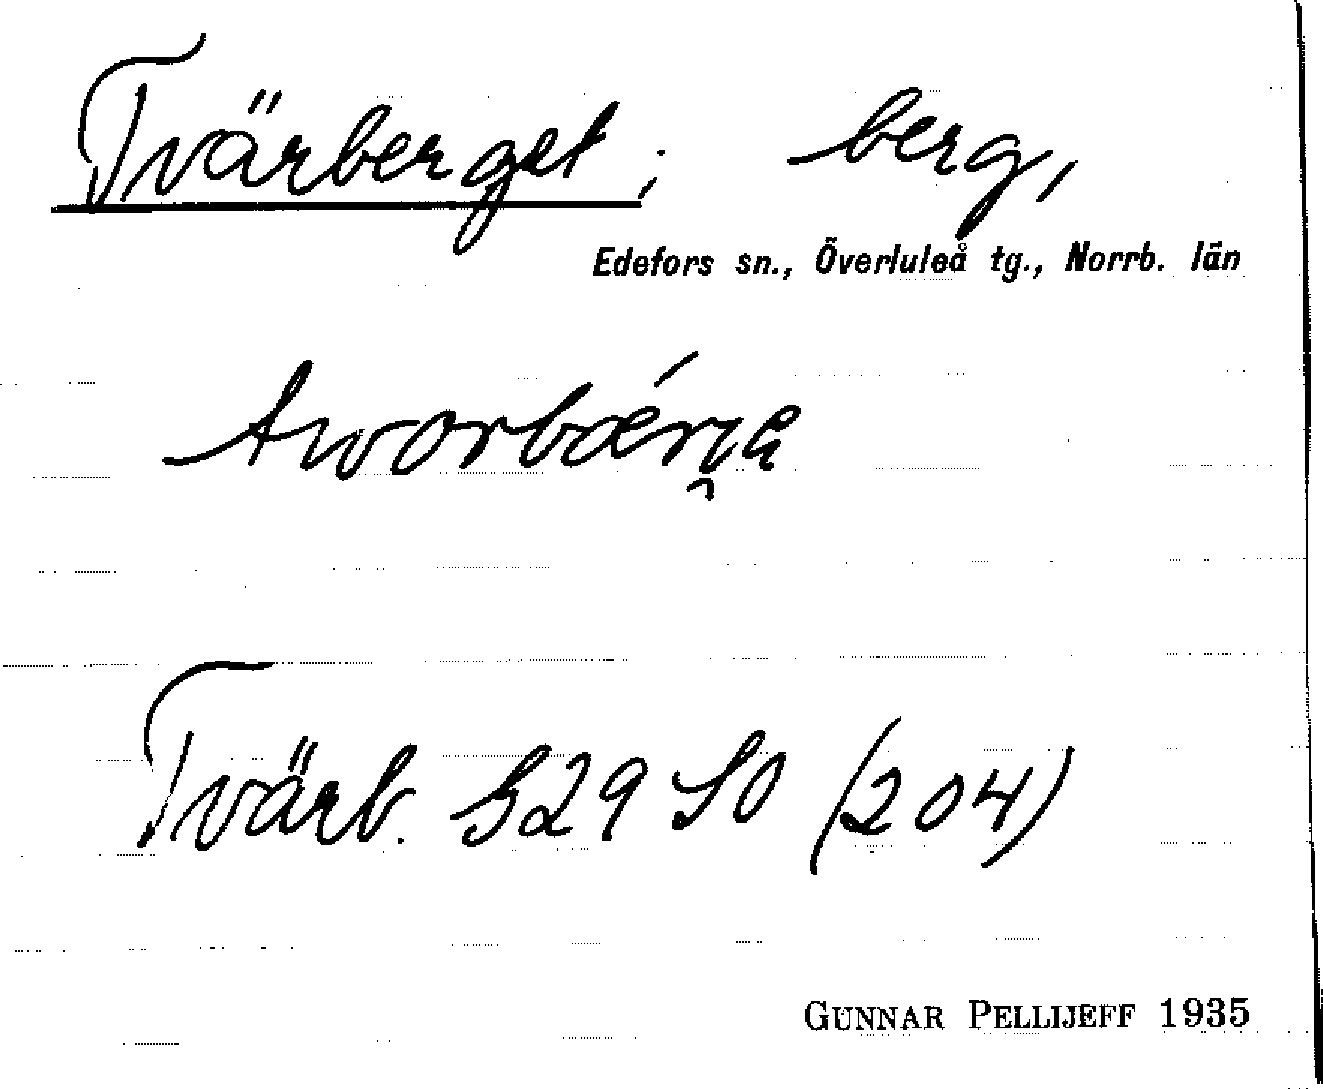 Tvärberget; berg,
Edefors sn., Överluleå tg., Norrb. län
Tvärb. S29 SO (204)
GUNNAR PELLIJEFF 1935